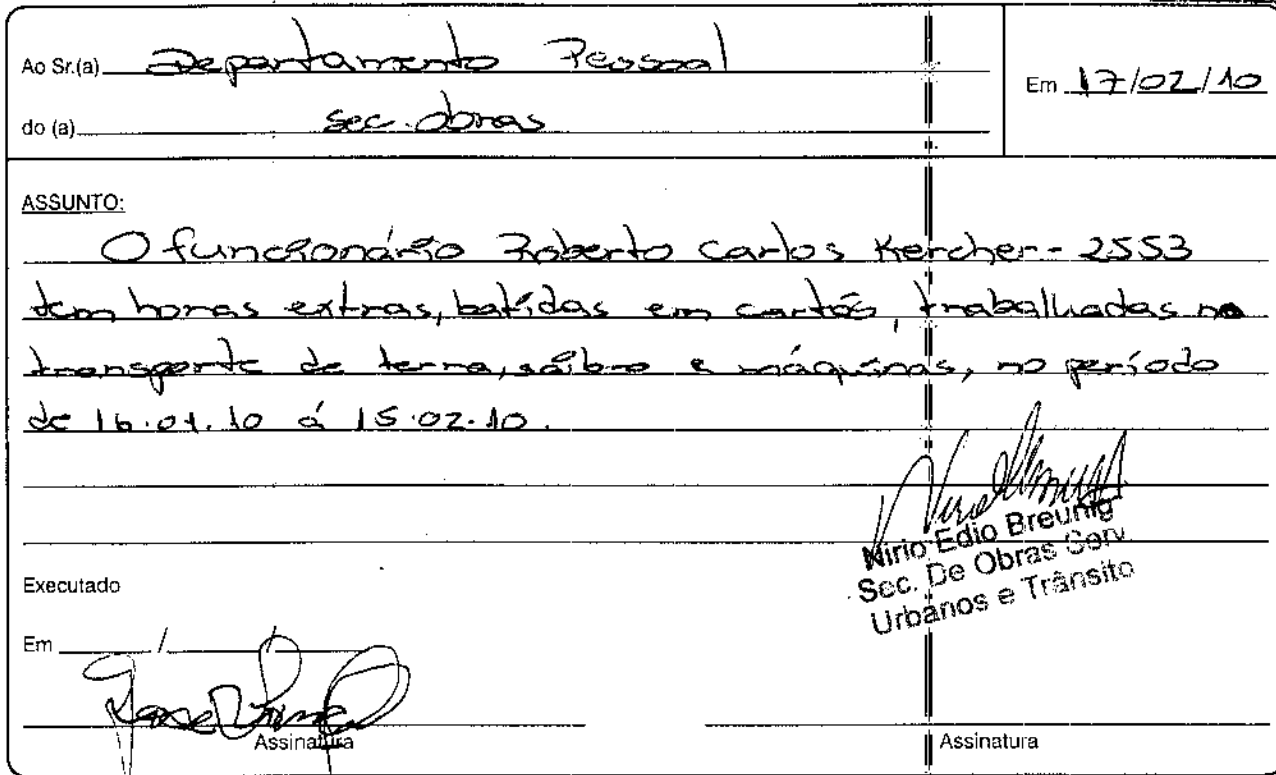 Ao Sr.(a) Departamento Pessoal
Em 17/02/10
do (a) Sec. obras
ASSUNTO:
O funcionário Roberto Carlos Kercher - 2553
tem horas extras, batidas em cartão, trabalhadas no
transporte de terra, saibro e máquinas, no período
de 16.01.10 á 15.02.10.
Nirio Edio Breunig
Sec. De Obras Serv
Urbanos e Trânsito
Executado
Em / /
Assinatura
Assinatura